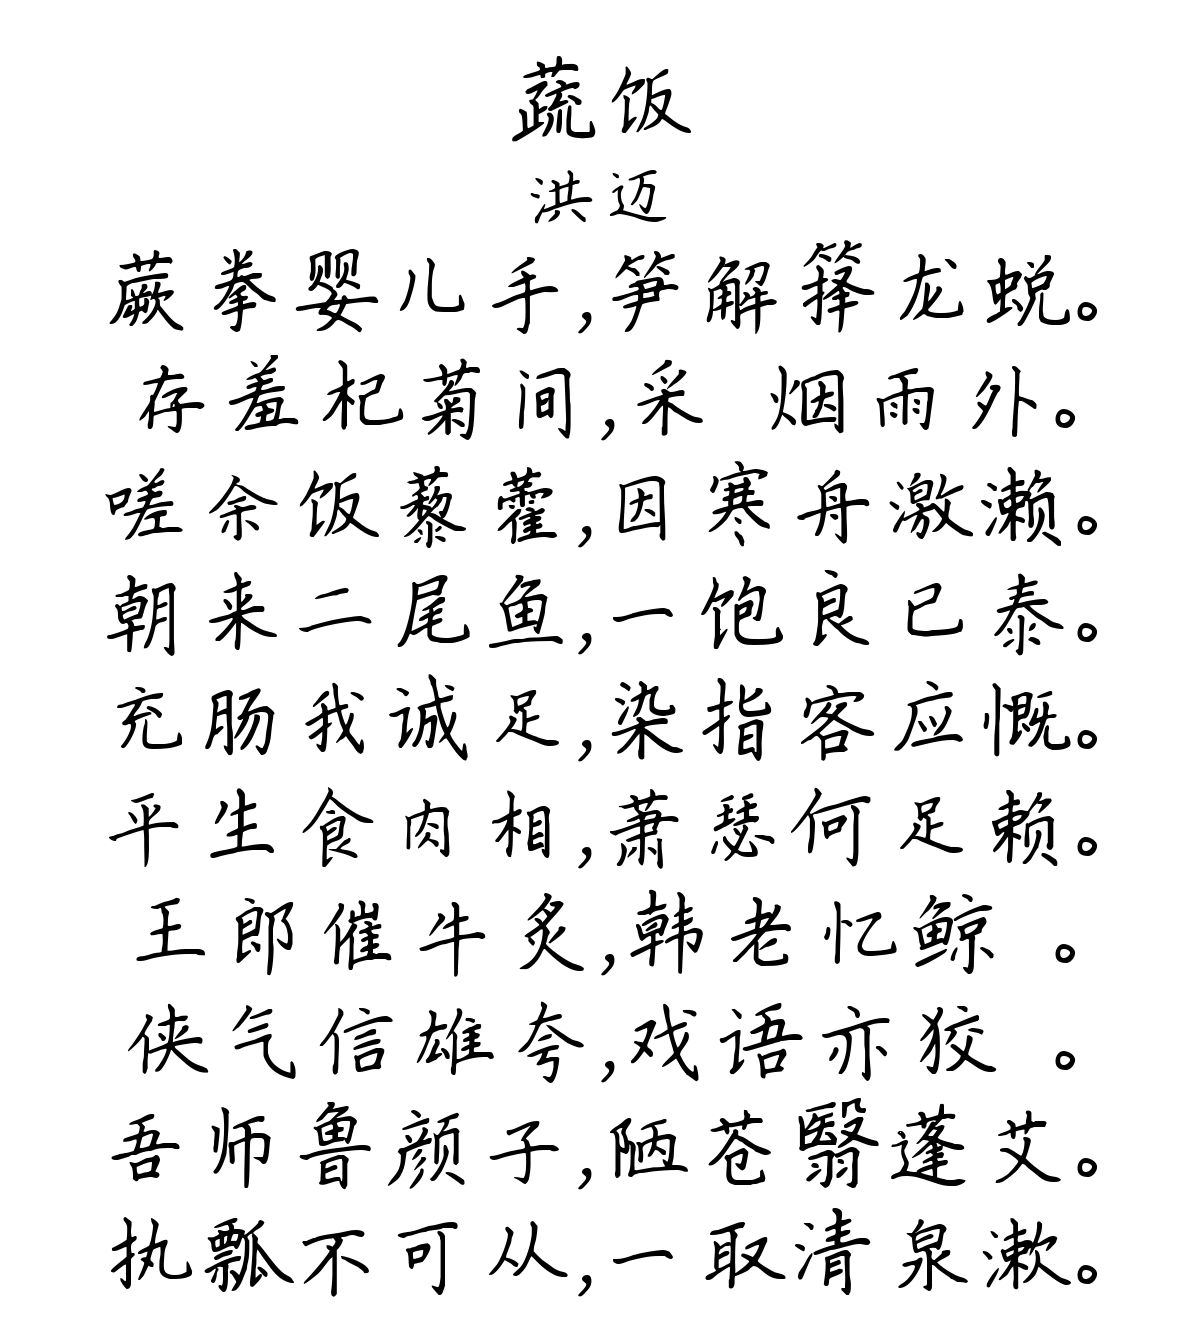 蔬饭
洪迈
蕨拳婴儿手,笋解箨龙蜕。
存羞杞菊间,采 烟雨外。
嗟余饭藜藿,因寒舟激濑。
朝来二尾鱼,一饱良已泰。
充肠我诚足,染指客应慨。
平生食肉相,萧瑟何足赖。
王郎催牛炙,韩老忆鲸 。
侠气信雄夸,戏语亦狡 。
吾师鲁颜子,陋苍翳蓬艾。
执瓢不可从,一取清泉漱。